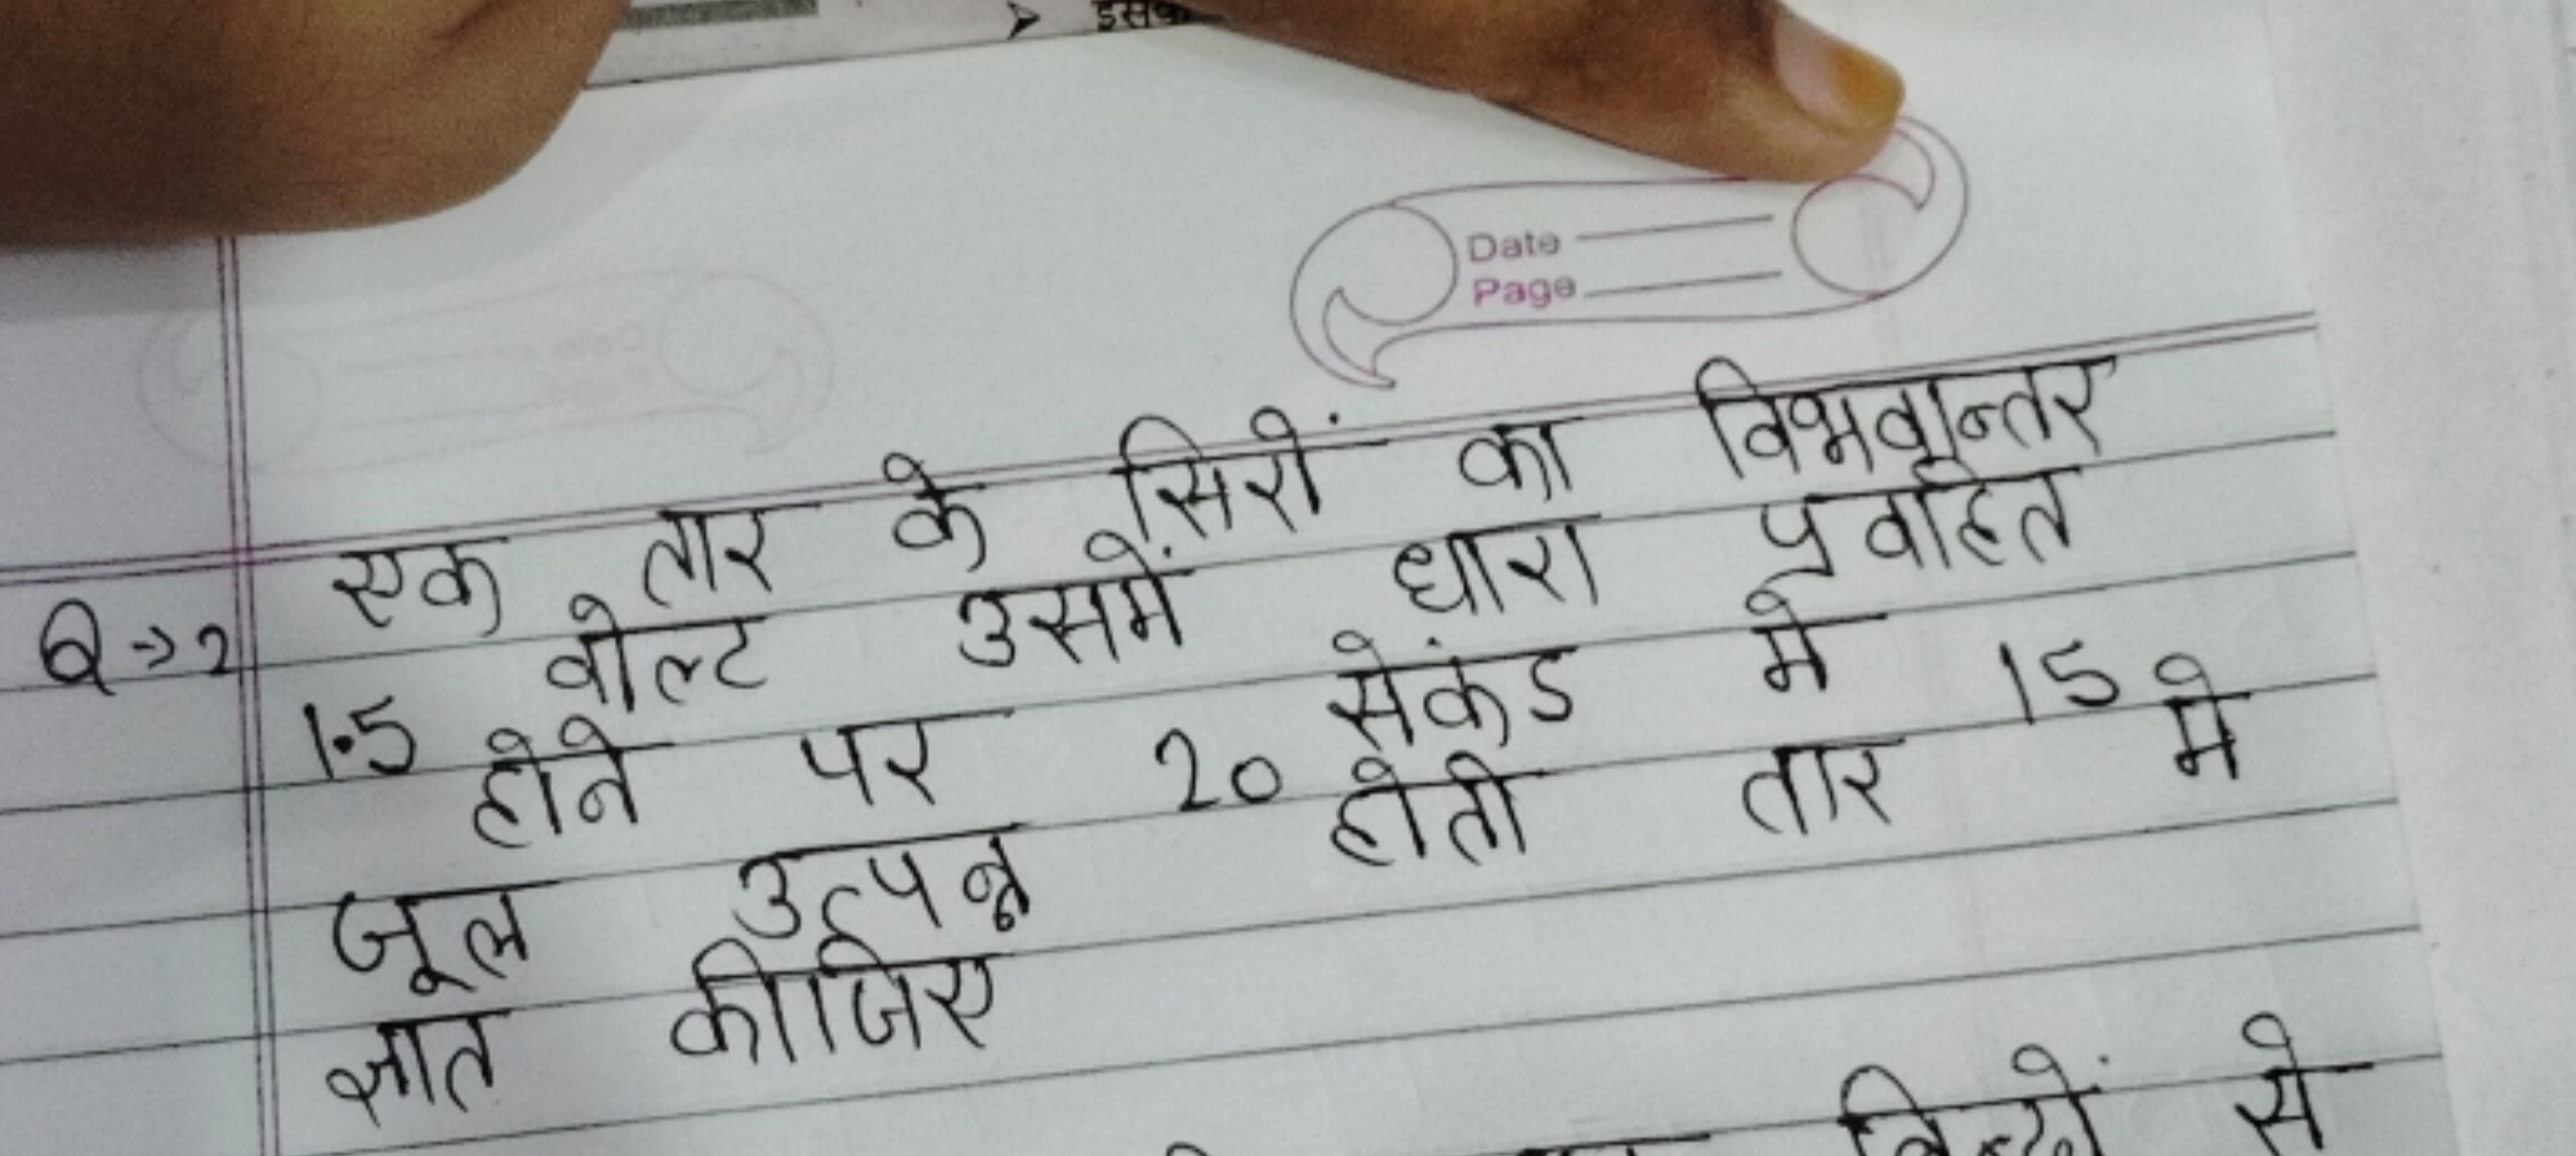 ➤ इसक
Date
Page
एक तार के सिरों का विभवान्तर
Q→2
1.5 वोल्ट उसमें धारा प्रवाहित
होने पर 20 सेकंड मे 15
जूल उत्पन्न होती तार मे
ज्ञात कीजिए
से